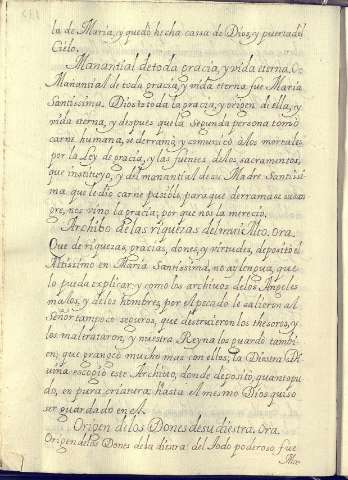 la de Maria, y quedò hecha cassa de Dios, y puerta dl
Cielo.
Manantial de toda gracia, y vida eterna. Or
Manantial de toda gracia, y vida eterna fue Maria
Santissima. Dios toda la gracia, y origen de ella, y
vida eterna, y despues que la segunda persona tomò
carne humana, se derramò, y comunicò à los mortales
por la Ley de gracia, y las fuentes de los sacramentos,
que instituyo, y del manantial de su Madre Santissi
ma, que le diò carne pasible, para que derramase su san
gre, nos vino la gracia, por que nos la mereciò.
Archibo de las riquezas del mui Alto. ora.
Que de riquezas, gracias, dones, y virtudes, depositò el
Altissimo en Maria Santissima, no ay lengua, que
lo pueda explicar, y como los archivos de los Angeles
malos, y de los hombres, por el pecado le salieron al
Señor tampoco seguros, que destruieron los thesoros, y
los malerataron, y nuestra Reyna los guardò tambi
en, que grangeò mucho mas con ellos; la Diestra Di
uina escogiò este Archibo, donde depositò, quanto pu
do, en pura criatura hasta el mesmo Dios quiso
ser guardado en el.
Origen de los Dones de su diestra. Ora.
Origen de los Dones de la diestra del Todo poderoso fue
Ma